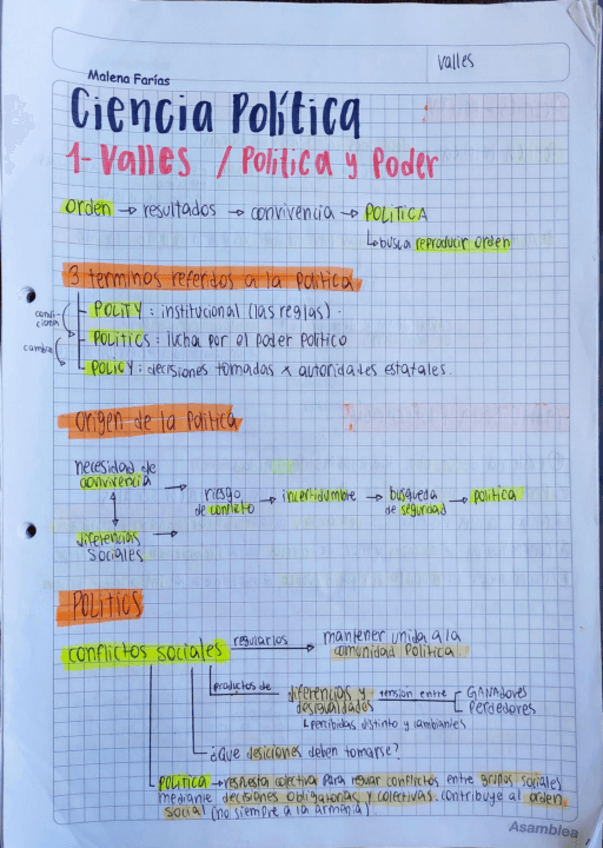 Valles
Malena Farías
Ciencia Política
1- Valles / Politica y Poder
orden → resultados → convivencia → POLITICA
↳ busca reproducir orden
3 terminos referidos a la politica
POLITY : institucional (las reglas).
condiciona
POLITICS : lucha por el poder politico
cambia
POLICY : decisiones tomadas x autoridades estatales.
origen de la politica
necesidad de
convivencia → riesgo de conflicto → incertidumbre → busqueda de seguridad → politica
diferencias
sociales →
POLITICS
conflictos sociales regularlos → mantener unida a la
comunidad politica.
productos de diferencias y desigualdades tension entre GANADORES
Perdedores
↳ percibidas distinto y cambiantes
¿Que desiciones deben tomarse?
POLITICA → respuesta colectiva para reguar conflictos entre grupos sociales
mediante decisiones obligatorias y colectivas. contribuye al orden
social (no siempre a la armonia)
Asamblea